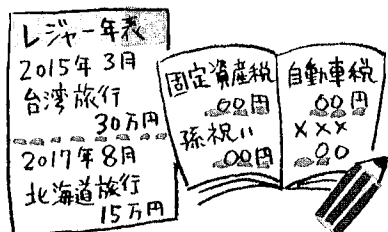 レジャー年表
2015年3月
台湾旅行
30万円
2017年8月
北海道旅行
15万円
固定資産税
〇〇円
孫祝い
〇〇円
自動車税
〇〇円
×××
〇〇